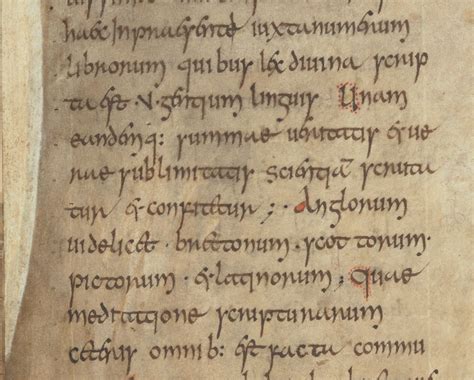 haec In praesenti iuxta numerum
librorum quibus lex diuina scrip
ta est ·V· gentium linguis Unam
eandemq: summae ueritatis & ue
rae sublimitatis scientiā scruta
tur & confitetur ;· Anglorum
uidelicet · brettonum · scottorum ·
pictorum · & latinorum ; Quae
meditatione scripturarum
ceteris omnib: est facta commu